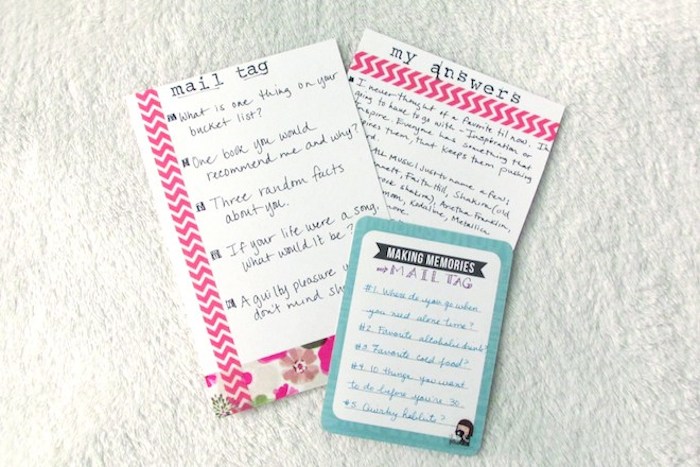 mail tag
What is one thing on your
bucket list?
One book you would
recommend me and why?
Three random facts
about you.
If your life were a song,
what would it be?
A guilty pleasure
don't mind
my answers
I never thought of a favorite til now. I'm
going to have to go with - Inspiration or
Inspire. Everyone has something that
them, that keeps them pushing
Music! Just to name a few:
Faith Hill, Shakira (old
shakira), Aretha Franklin,
Kodaline, Metallica
more.
MAKING MEMORIES
MAIL TAG
#1. Where do you go when
you need alone time?
#2. Favorite alcoholic drink?
#3. Favorite cold food?
#4. 10 things you want
to do before you're 30.
#5. Quirky habits?